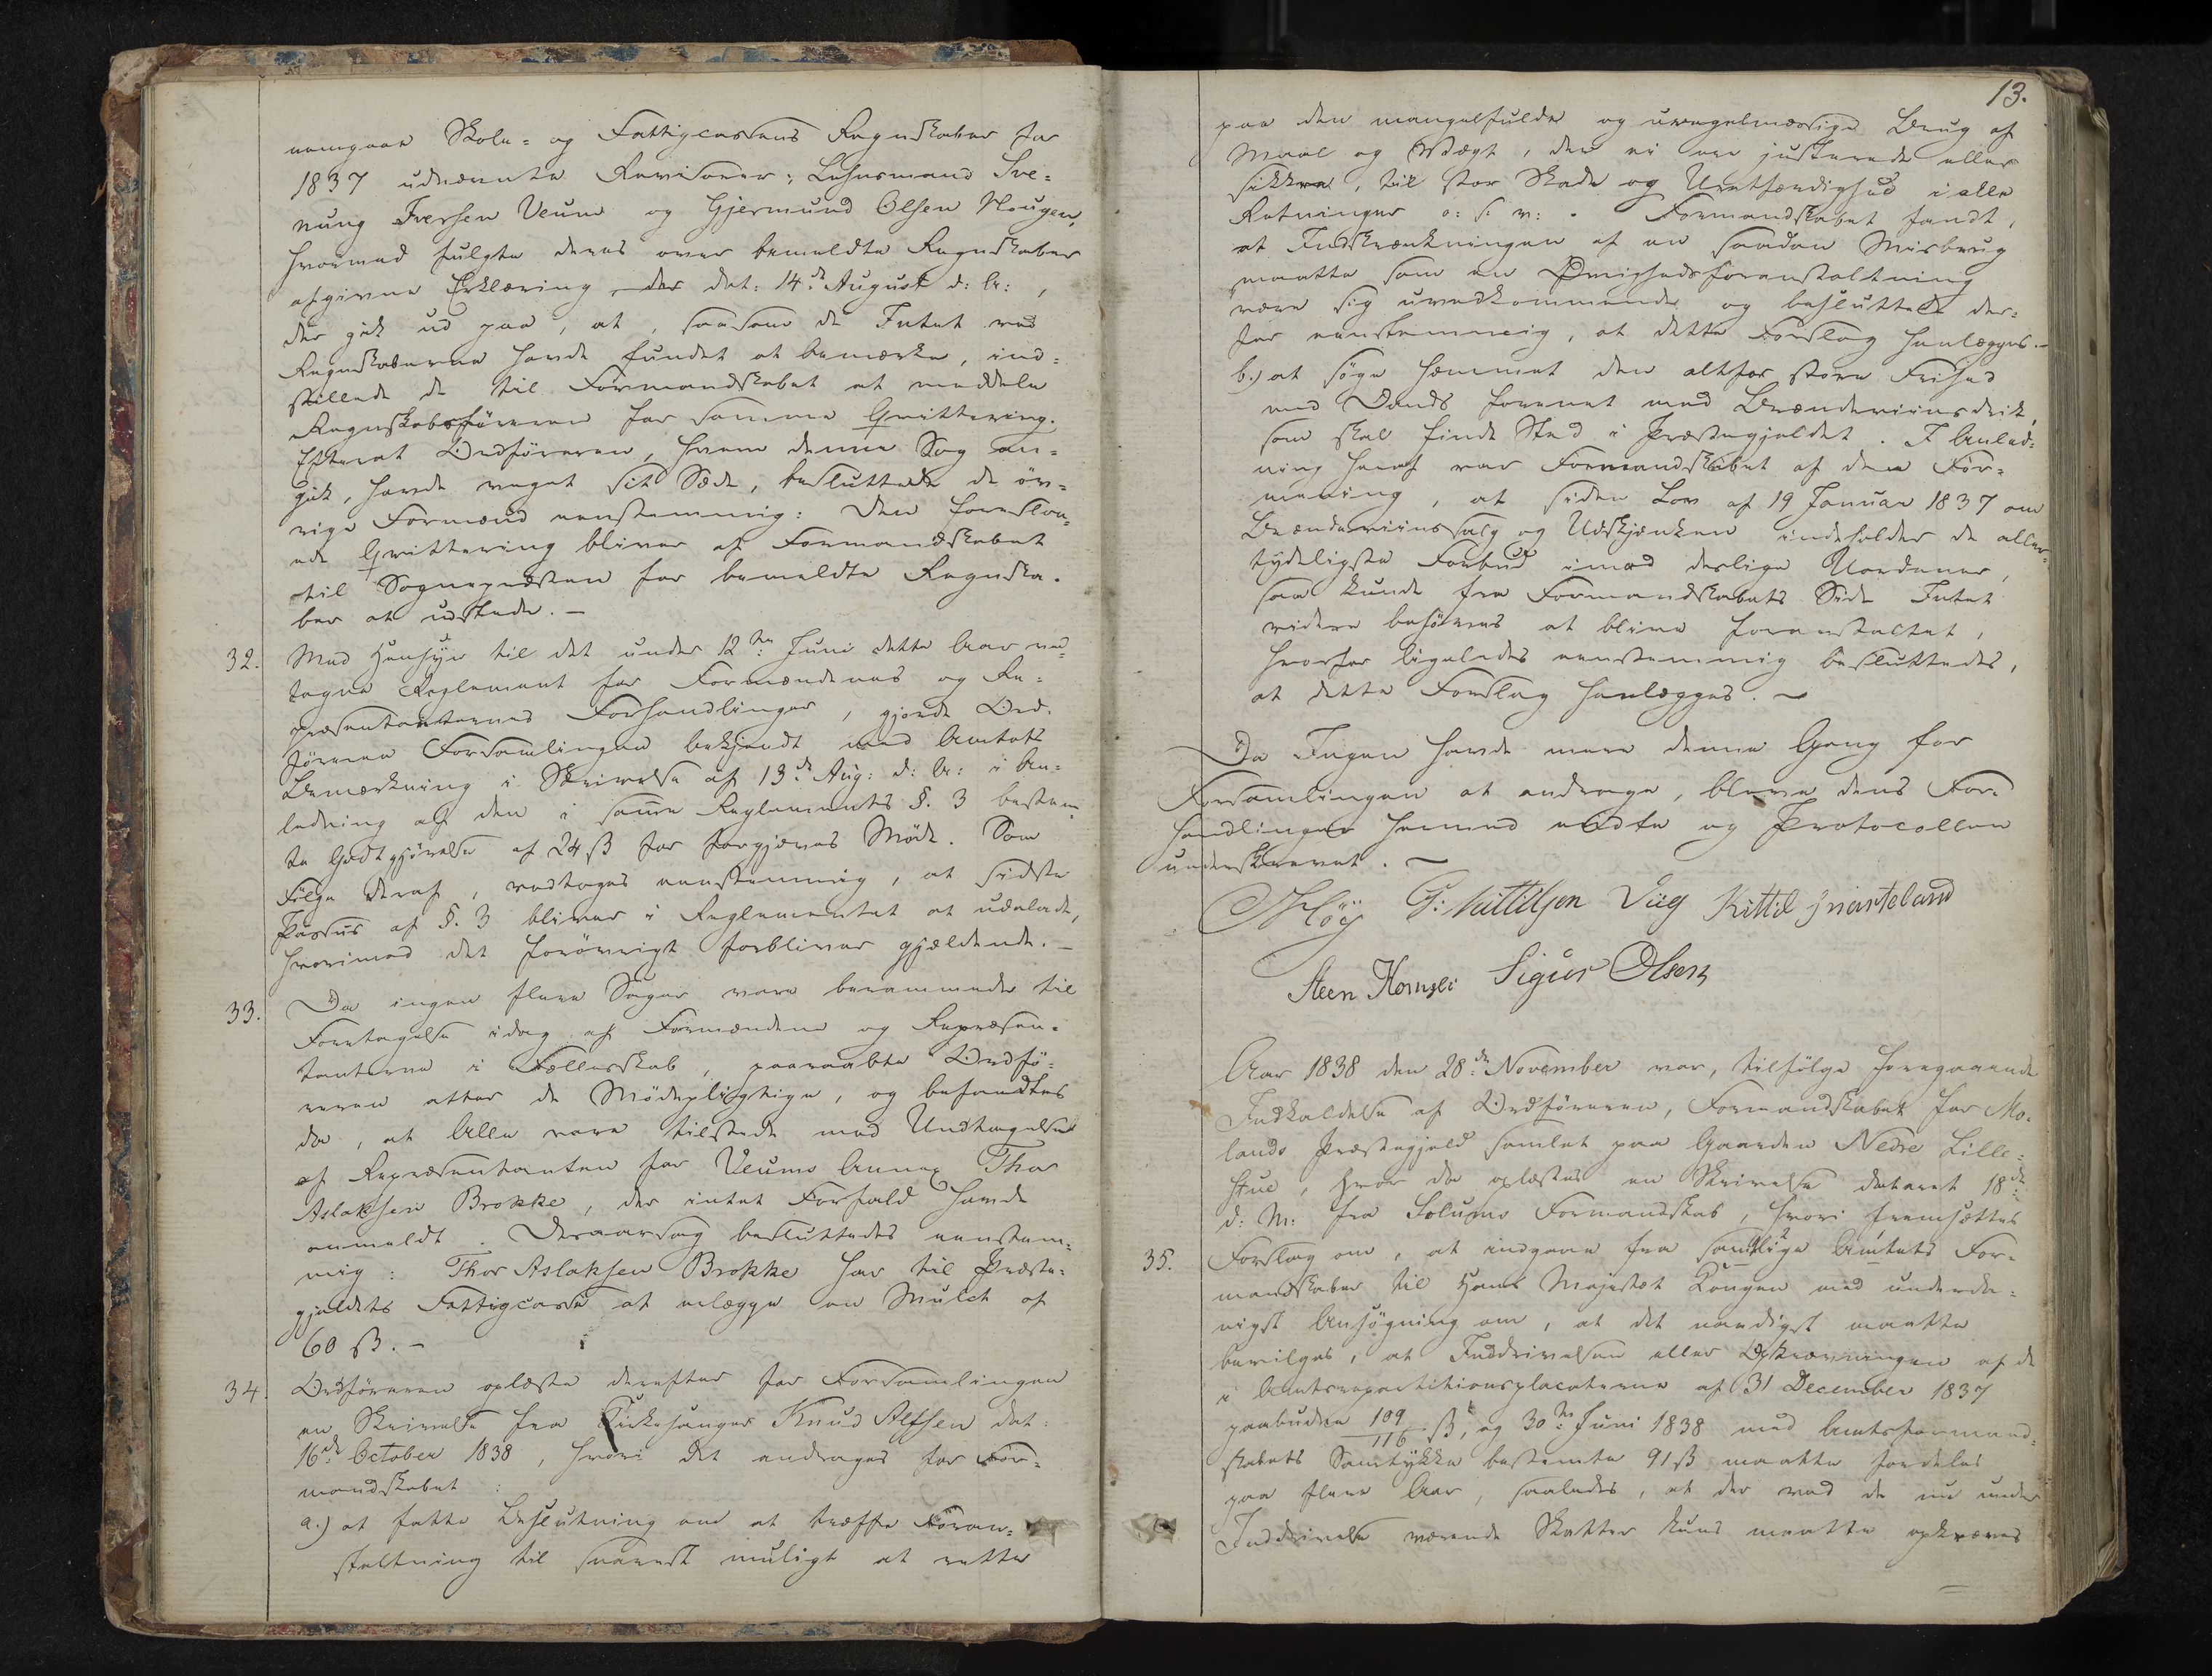 nemgaae Skole- og Fattigcassens Regnskaber for
1837 udnævnte Revisorer: Lehnsmand Sve-
nung Iversen Veum og Gjermund Olsen Hougen,
hvormed fulgte deres over bemeldte Regnskaber
afgivne Erklæring dat: 14de August d: A:,
der gik ud paa, at, saasom de Intet ved
Regnskaberne havde fundet at bemærke, ind-
stillede de til Formandskabet at meddele
Regnskabsføreren for samme Qvittering.
Efterat Ordføreren, hvem denne Sag an-
gik, havde veget sit Sæde, besluttede de øv-
rige Formænd eenstemmig: Den foreslaa-
ede Qvittering bliver af Formandskabet
til Sognepræsten for bemeldte Regnska-
ber at udstede. —
32. Med Hensyn til det under 12te Juni dette Aar ved-
tagne Reglement for Formændenes og Re-
præsentanternes Forhandlinger, gjorde Ord-
føreren Forsamlingen bekjendt med Amtets
Bemærkning i Skrivelse af 13de Aug: d: A: i An-
ledning af den i samme Reglements §. 3 bestem-
te Godtgjørelse af 24 ß for forgjæves Møde. Som
Følge deraf, vedtoges eenstemmig, at sidste
Passus af §. 3 bliver i Reglementet at udelade,
hvorimod det forøvrigt forbliver gjældende. —
33. Da ingen flere Sager vare berammede til
Foretagelse idag af Formændene og Repræsen-
tanterne i Fællesskab, paaraabte Ordfø-
reren atter de Mødepligtige, og befandtes
da, at Alle vare tilstede med Undtagelse
af Repræsentanten for Veums Annex Thor
Aslaksen Brokke, der intet Forfald havde
anmeldt. Desaarsag besluttedes eenstem-
mig: Thor Aslaksen Brokke har til Præste-
gjeldets Fattigcasse at erlægge en Mulct af
60 ß. —
34. Ordføreren oplæste derefter for Forsamlingen
en Skrivelse fra Kirkesanger Knud Alfsen dat:
16de October 1838, hvori det andrages for For-
mandskabet:
a.) at fatte Beslutning om at træffe Foran-
staltning til snarest muligt at rette
13.
paa den mangelfulde og uregelmæssige Brug af
Maal og Vægt, der ei ere justerede eller
sikkre, til stor Skade og Uretfærdighed i alle
Retninger o: s: v:. Formandskabet fandt,
at Indskrænkningen af en saadan Misbrug
maatte som en Øvrighedsforanstaltning
være sig uvedkommende og besluttede der-
for eenstemmig, at dette Forslag henlægges. —
b.) at søge hæmmet den altfor store Frihed
med Dands forenet med Brændeviinsdrik,
som skal finde Sted i Præstegjeldet. I Anled-
ning heraf var Formandskabet af den For-
mening, at siden Lov af 19 Januar 1837 om
Brændeviinssalg og Udskjænken indeholder de aller-
tydeligste Forbud imod deslige Uordener,
saa kunde fra Formandskabets Side Intet
videre behøves at blive foranstaltet,
hvorfor ligeledes eenstemmig besluttedes,
at dette Forslag henlægges. —
Da Ingen havde mere denne Gang for
Forsamlingen at andrage, bleve dens For-
handlinger hermed endte og Protocollen
underskrevet. —
Høÿ G: Kittilsen Viig Kittil
Steen Sigur Olsen
Aar 1838 den 28de November var, tilfølge foregaaende
Indkaldelse af Ordføreren, Formandskabet for Mo-
lands Præstegjeld samlet paa Gaarden Nedre Lille-
stue, hvor da oplæstes en Skrivelse dateret 18de
d: M: fra Solums Formandskab, hvori fremsættes
35. Forslag om, at indgaae fra samtlige Amtets For-
mandskaber til Hans Majestæt Kongen med underda-
nigst Ansøgning om, at det naadigst maatte
bevilges, at Inddrivelsen eller Opkrævningen af de
i Amtsrepartitionsplacaterne af 31 December 1837
paabudne 109/116 ß, og 30te Juni 1838 med Amtsformand-
skabets Samtykke bestemte 91 ß maatte fordeles
paa flere Aar, saaledes, at der med de nu under
Inddrivelse værende Skatter kuns maatte opkræves